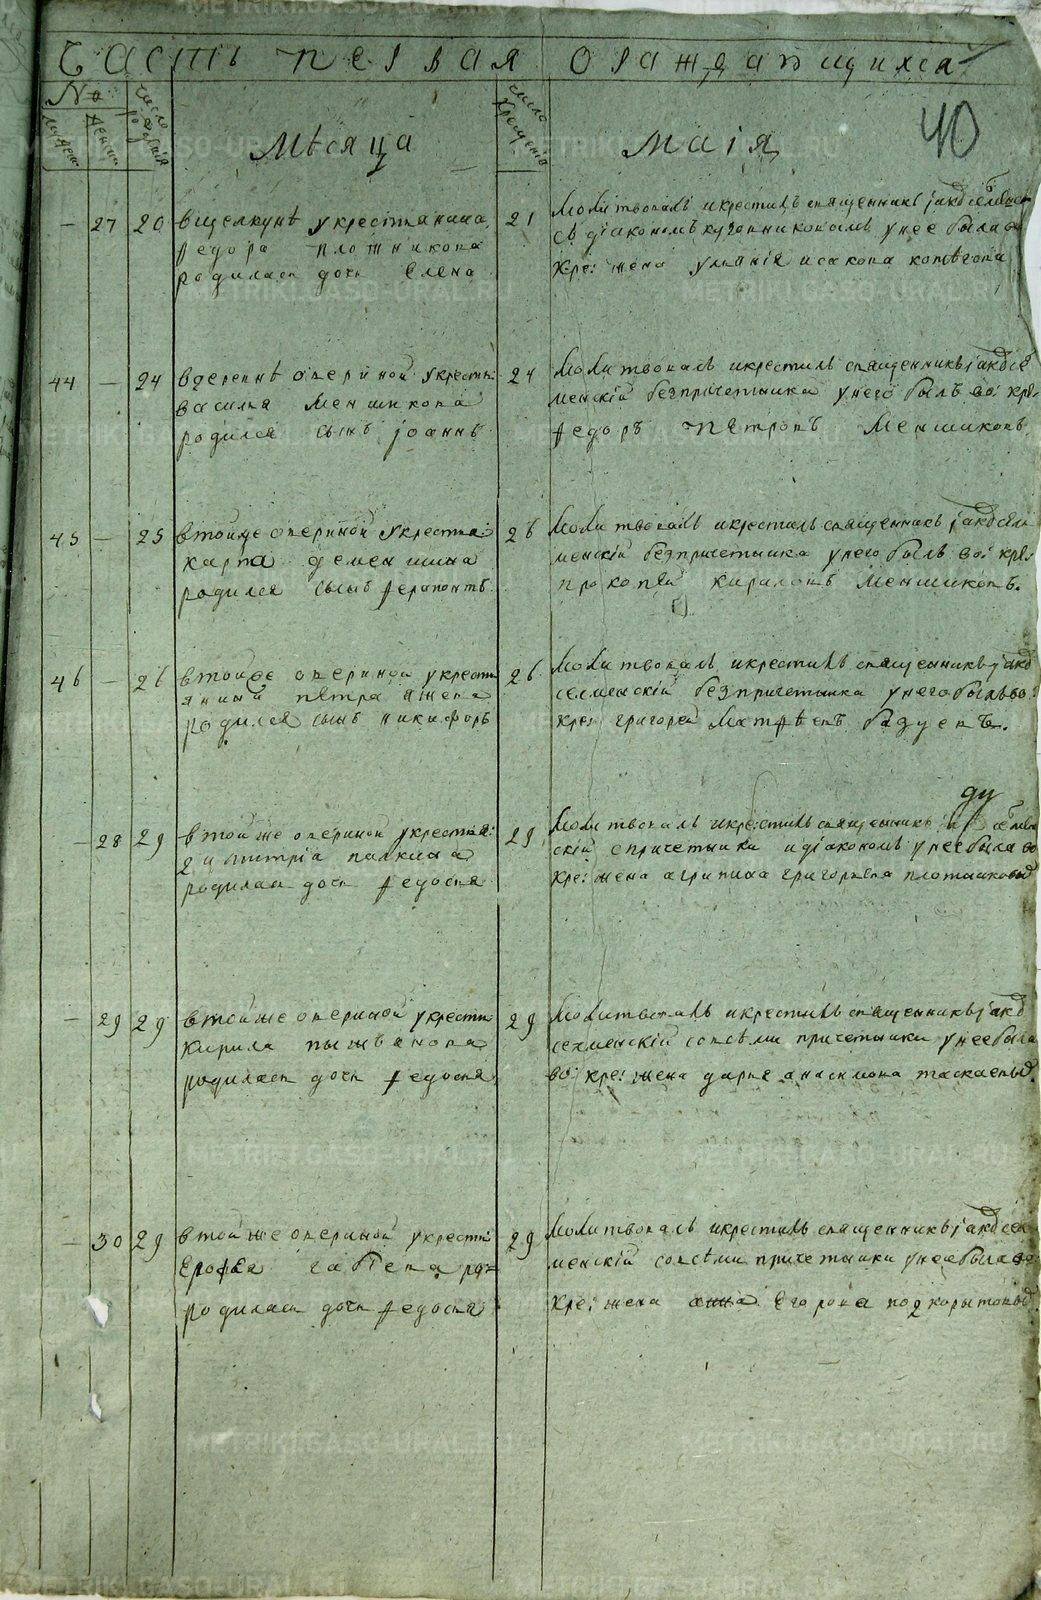 Часть первая о раждающихся
40
№
младен:
женска
число рожденія
Мѣсяца
число крещенія
Маія
— 27 20 в щелкунѣ у крестіянина
Федора плотникова
родилась дочь Елена
21 Молитвовалъ и крестилъ священникъ Іаковъ
съ діакономъ у нее была во
кре: жена исакова
44 — 24 в деревнѣ овериной у крестъ:
василья Меншикова
родился сынъ Іоаннъ
24 Молитвовалъ и крестилъ священникъ Іаковъ се
менскій без причетника у него былъ во: кре:
Федоръ Петровъ Меншиковъ
45 — 25 в тойже овериной у крестья:
карпа деменшина
родился сынъ Ферапонтъ
26 Молитвовалъ и крестилъ священникъ Іаковъ сел
менскій без причетника у него былъ во: кре:
прокопей кириловъ Меншиковъ.
46 — 26 в тойже овериной у крести
янина петра
родился сынъ никифоръ
26 Молитвовалъ и крестилъ священникъ Іаковъ
селменскій без причетника у него былъ во:
кре: григорей Матфѣевъ
ду
— 28 29 в той же овериной у крестья:
дмитрія палкина
родилась дочь Федосья
29 Молитвовалъ и крестилъ священникъ
скій с причетники и діакономъ у нее была во
кре: жена агрипина григорьева плотникова
— 29 29 в той же овериной у крести
Кирила пышьянова
родилась дочь Федосья
29 Молитвовалъ и крестилъ священникъ Іаковъ
селменскій со всѣми причетники у нее была
во: кре: жена дарья
— 30 29 в той же овериной у крести
Ерофея ро=
родилась дочь Федосья
29 Молитвовалъ и крестилъ священникъ Іаковъ сел
менскій со всѣми причетники у нее была во:
кре: жена анна Егорова подкорытова
METRIKI.GASO-URAL.RU